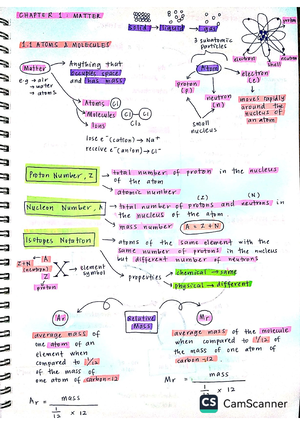 CHAPTER 1 : MATTER
solid liquid gas
proton
3 subatomic particles
1.1 ATOMS & MOLECULES
Matter
Anything that
occupies space
and has mass
e.g → air
→ water
→ atoms
Atom
electron
shell
neutron
proton
(p)
neutron
(n)
electron
(e)
small
nucleus
moves rapidly
around the
nucleus of
an atom
Atoms Cl
Molecules Cl Cl
Cl2
Ions
lose e⁻ (cation) → Na⁺
receive e⁻ (anion) → Cl⁻
Proton Number, Z
total number of proton in the nucleus
of the atom
atomic number
(Z) (N)
Nucleon Number, A
total number of protons and neutrons in
the nucleus of the atom
mass number A = Z + N
Isotopes Notation
atoms of the same element with the
same number of protons in the nucleus
but different number of neutrons
Z+N ← A
(neutron)
X → element
symbol
Z
proton
properties
chemical → same
physical → different
Ar
Relative
Mass
Mr
average mass of
one atom of an
element when
compared to 1/12
of the mass of
one atom of carbon-12
average mass of the molecule
when compared to 1/12 of
the mass of one atom of
carbon-12.
Ar = mass
1/12 × 12
Mr = mass
1/12 × 12
CS CamScanner